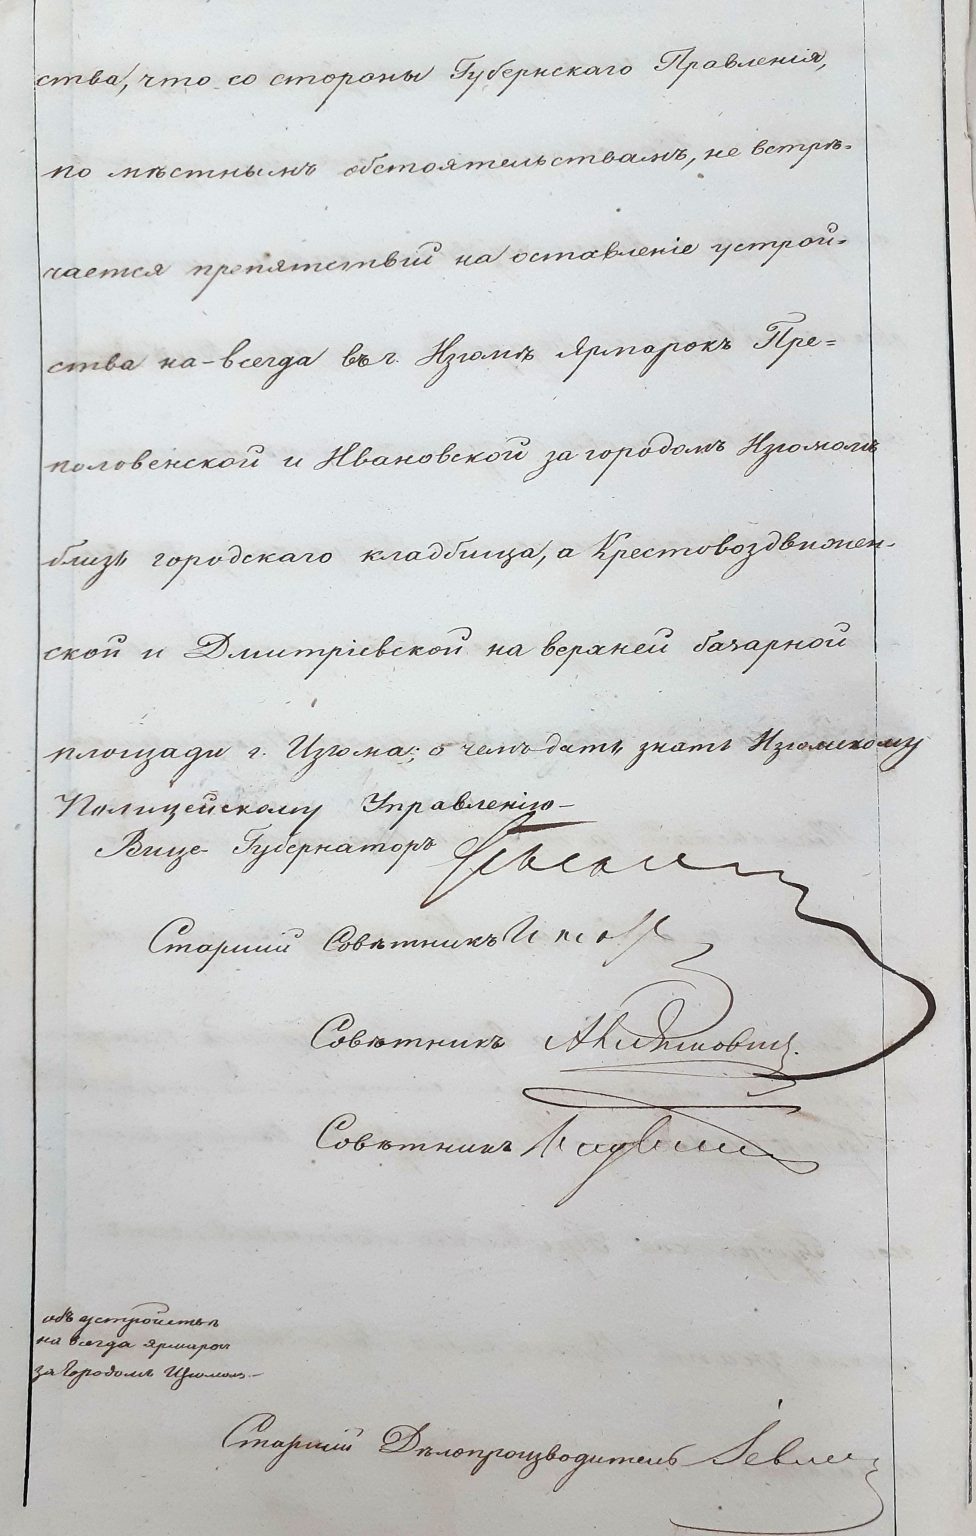 ства, что со стороны Губернскаго Правленія,
по мѣстнымъ обстоятельствамъ, не встрѣ-
чается препятствій на оставленіе устрой-
ства на-всегда въ г. Изюмѣ ярмарокъ Пре=
половенской и Ивановской за городомъ Изюмомъ
близь городскаго кладбища, а Крестовоздвижен-
ской и Дмитріевской на верхней базарной
площади г. Изюма; о чемъ дать знать Изюмскому
Полицейскому Управленію-
Вице-Губернаторъ
Старшій Совѣтникъ
Совѣтникъ
Совѣтникъ
объ устройствѣ
на всегда ярмарок
за Городомъ Изюмом-
Старшій Дѣлопроизводитель